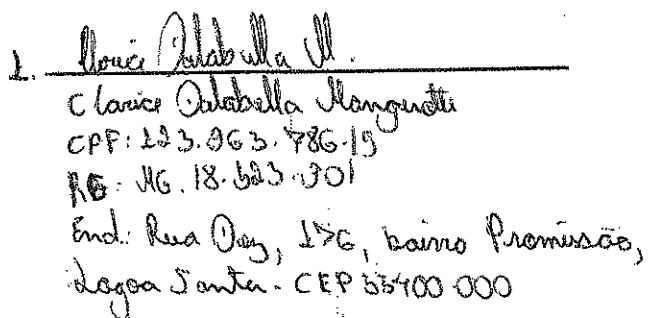 1. Clarice Dalabella M.
Clarice Dalabella Mangerotti
CPF: 123.963.786-19
RG: MG. 18.523.901
End.: Rua Dez, 176, bairro Promissão,
Lagoa Santa - CEP 33400 000